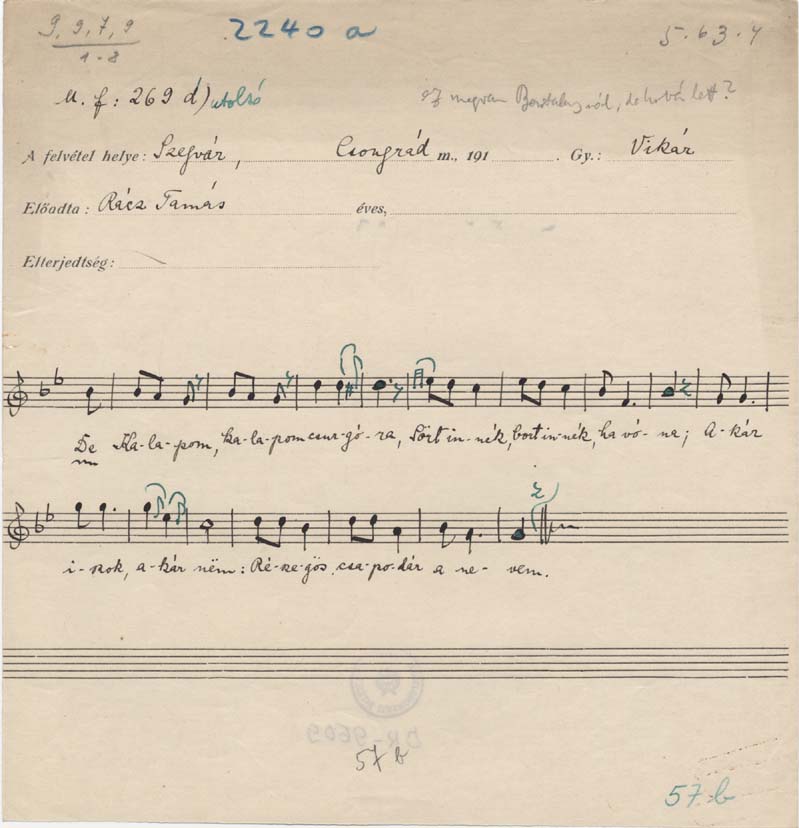 9, 9, 7, 9
1-8
2240 a
5. 63. 4
M. f: 269 d) utolsó
ez megvan de hová lett?
A felvétel helye: Szegvár, Csongrád m., 191 . Gy.: Vikár
Előadta: Rácz Tamás éves,
Elterjedtség:
De Ka-la-pom, ka-la-pom csur-gó-ra, Sört in-nék, bort in-nék, ha vó-na; A-kár
i-szok, a-kár nëm: Ré-sze-gös csa-po-dár a ne-vem.
DR-9609
57 b
57. b